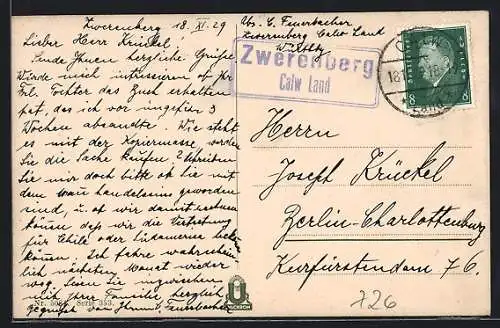 Zwerenberg 18. XI. 29
Lieber Herr Krückel!
Sende Ihnen herzliche Grüße
Würde mich interessieren ob Ihr
Frl. Tochter das Buch erhalten
hat, das ich vor ungefähr 3
Wochen absandte. Wie steht
es mit der Kopiermasse, werden
Sie die Sache kaufen? Schreiben
Sie mir doch bitte ob Sie mit
dem handelseins geworden
sind, u. ob wir damit rechnen
können dass wir die Vertretung
für Chile oder Südamerika
können. Ich fahre wahrschein
lich nächsten Monat wieder
weg. Seien Sie inzwischen
mit Ihrer Familie herzlich
gegrüßt von Ihrem C. Feuerbacher
Abs. C. Feuerbacher
Zwerenberg Calw Land
Württbg
Zwerenberg
Calw Land
DEUTSCHES REICH
8 8
CALW
Land
Herrn
Joseph Krückel
Berlin-Charlottenburg
Kurfürstendam 76.
726
Serie 353.